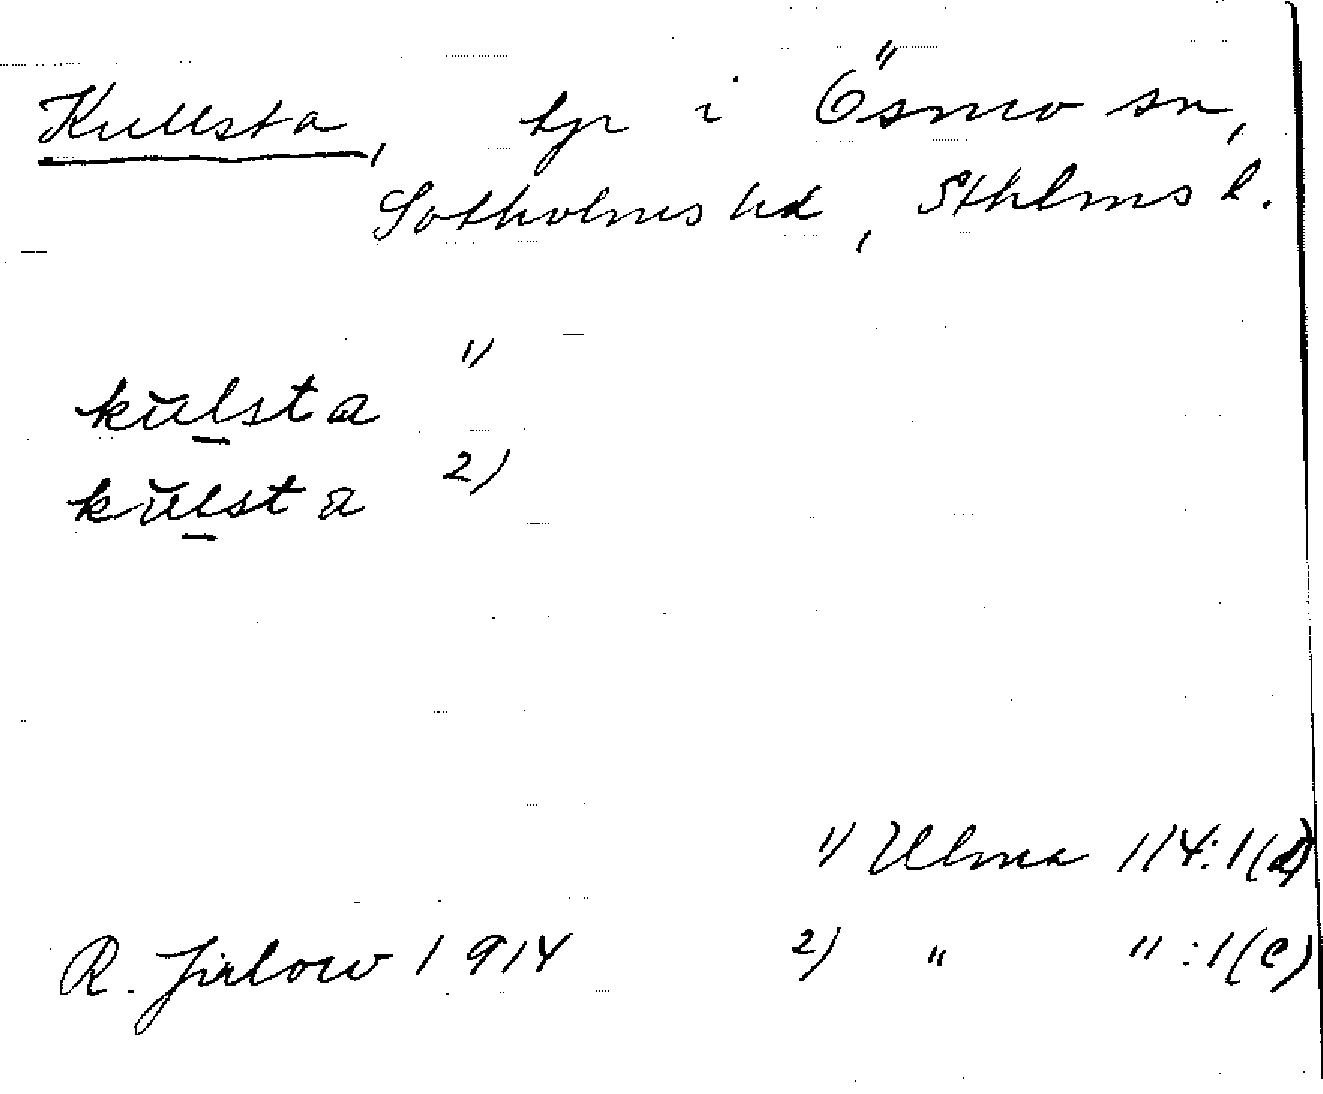 Kullsta, by i Ösmo sn,
Sotholms hd, Sthlms l.
kŭlsta 1)
kŭlsta 2)
1) Ulma 114:1(d)
R. Jirlow 1914 2) " " :1(e)